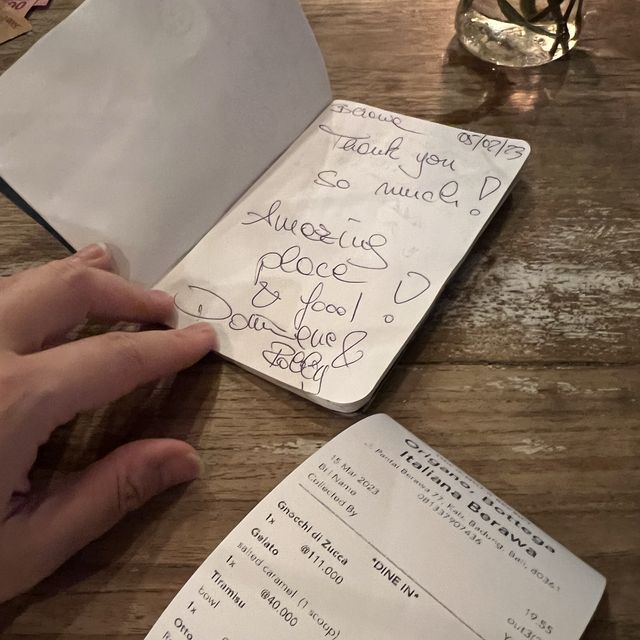 Berawa 05/02/23
Thank you
so much!
Amazing
place
& food!
&
Origano, Bottega
Italiana Berawa
Pantai Berawa 77, Kab. Badung, Bali, 80361
15 Mar 2023 19:55
Bill Name
Collected By
*DINE IN*
Gnocchi di Zucca
1x @111.000
Gelato
salted caramel (1 scoop)
1x @40.000
Tiramisu
bowl
1x
Otto